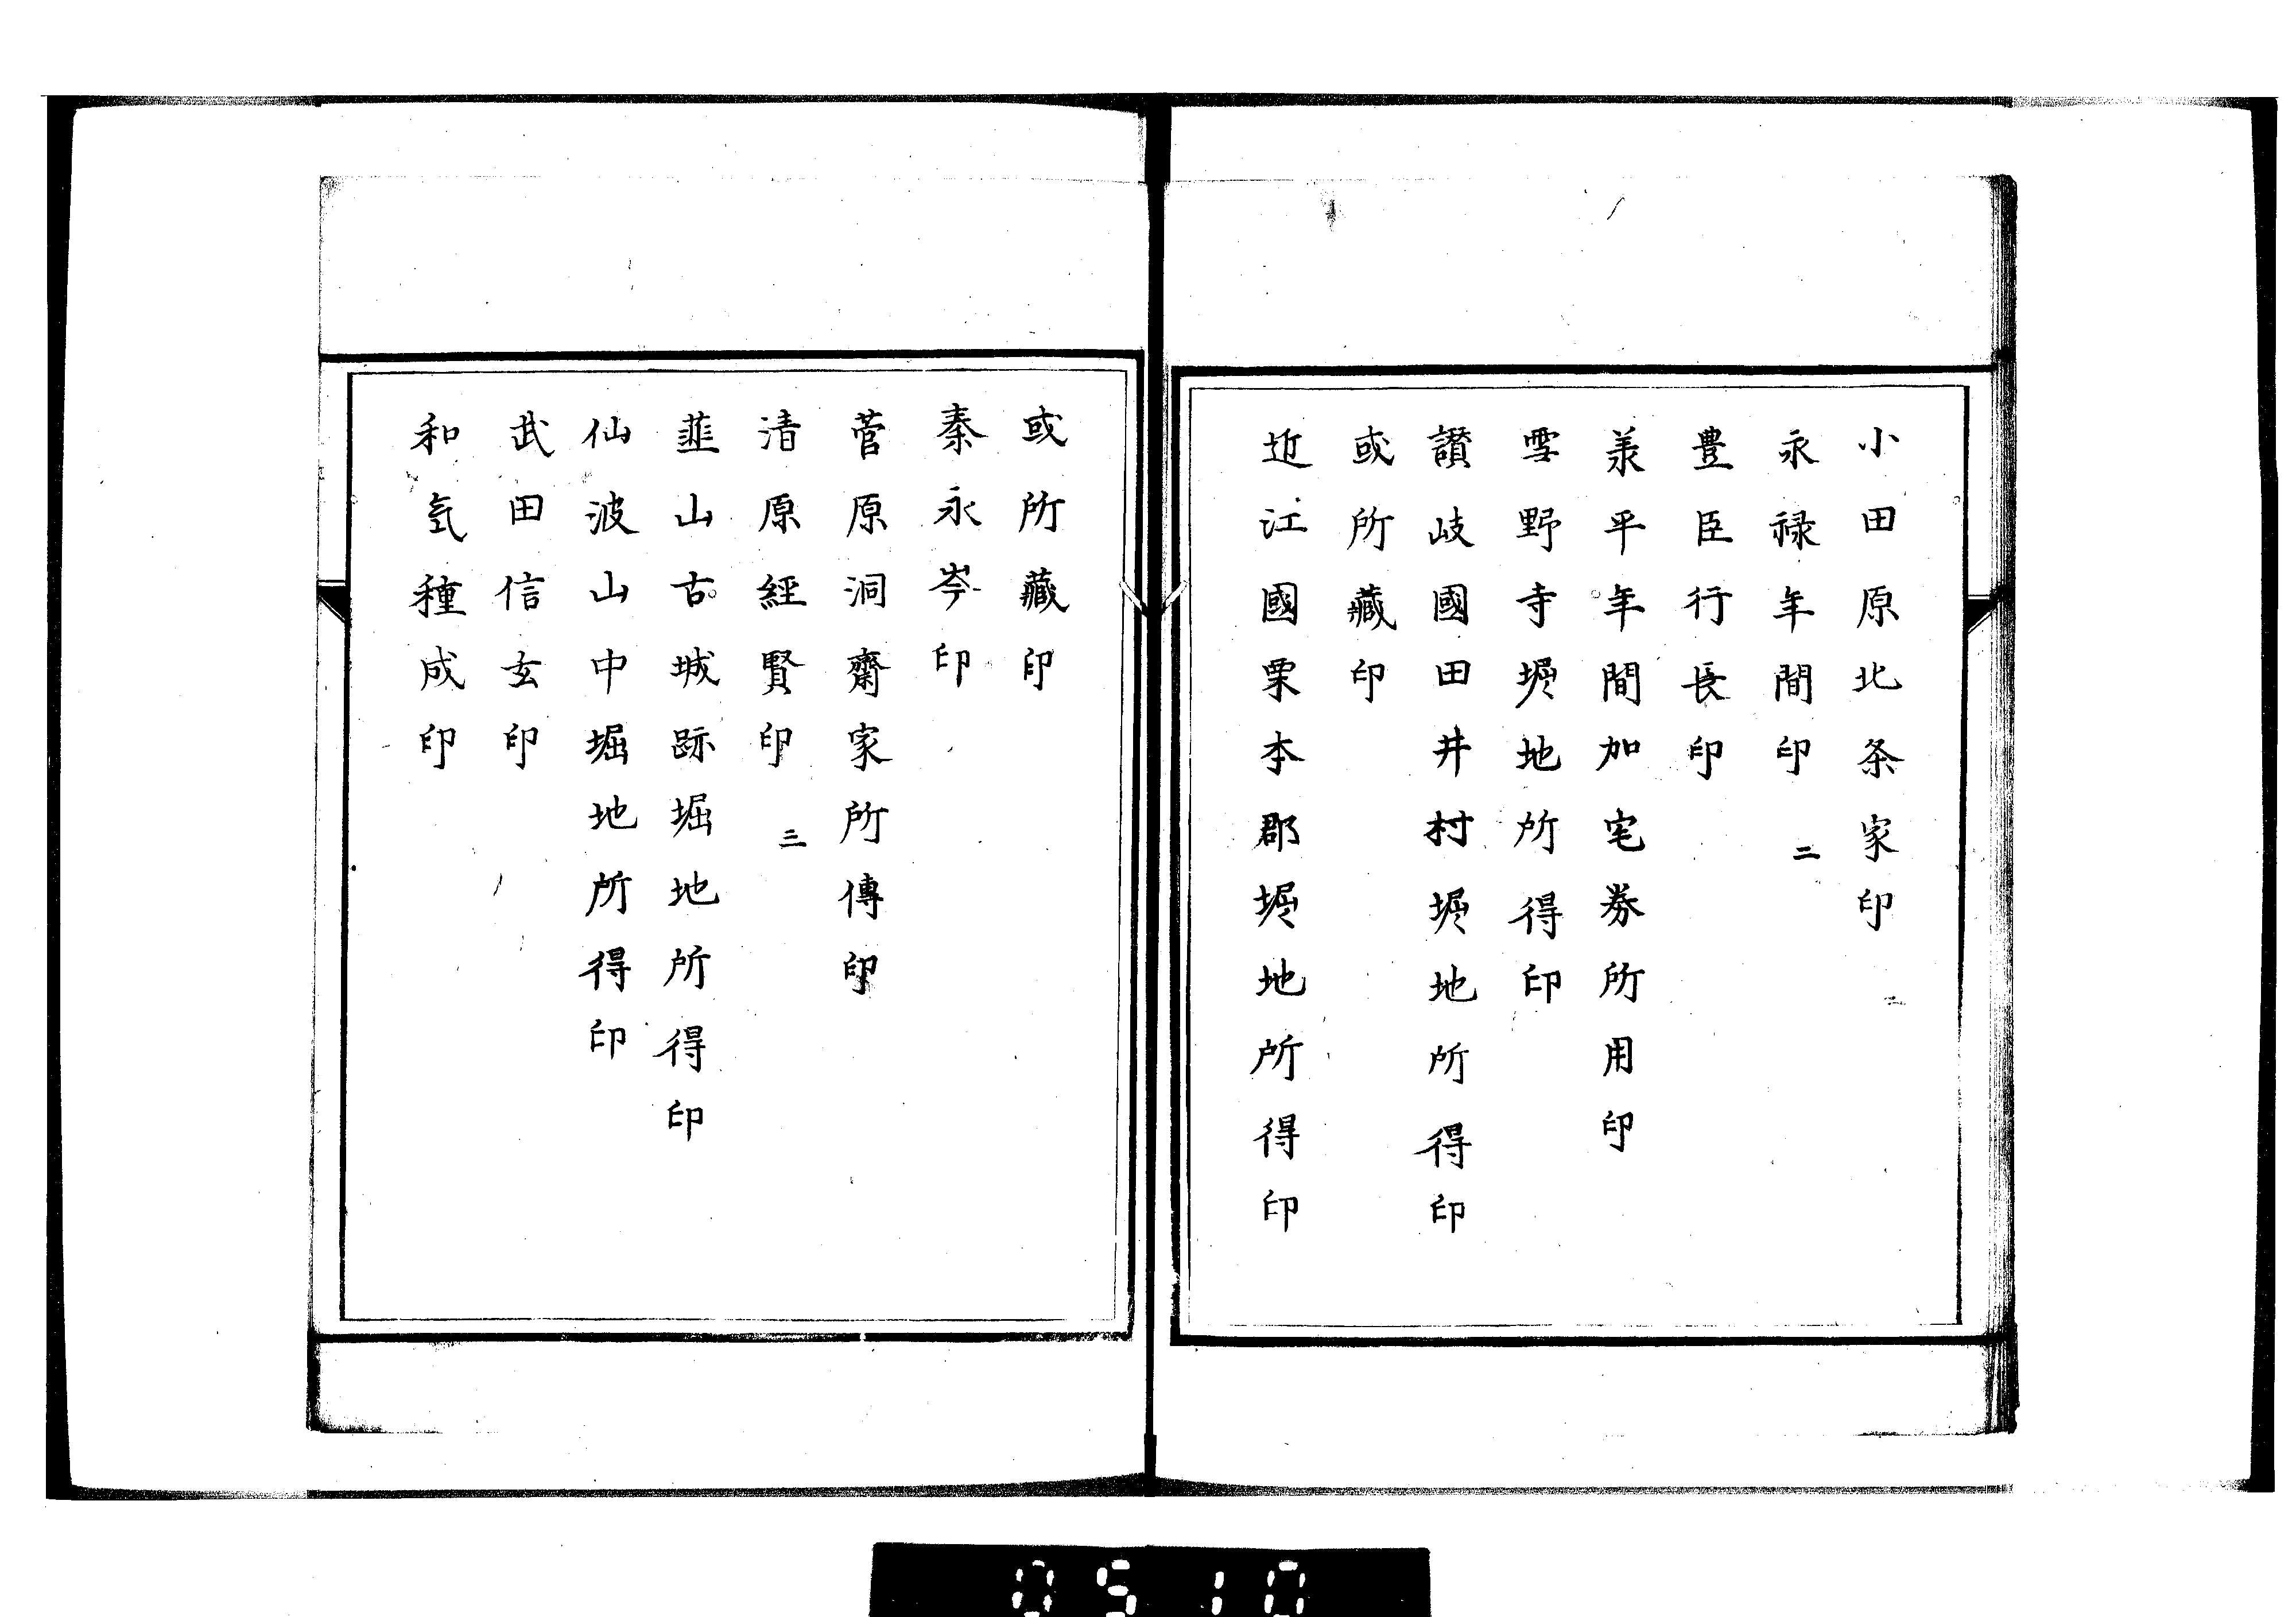 小田原北条家印
永禄年間印 二
豊臣行長印
羕平年間加宅券所用印
雪野寺堀地所得印
讃岐國田井村堀地所得印
或所藏印
近江國栗本郡堀地所得印
或所藏印
秦永岑印
菅原洞齋家所傳印
清原經賢印 三
韮山古城跡堀地所得印
仙波山中堀地所得印
武田信玄印
和氣種成印
0510